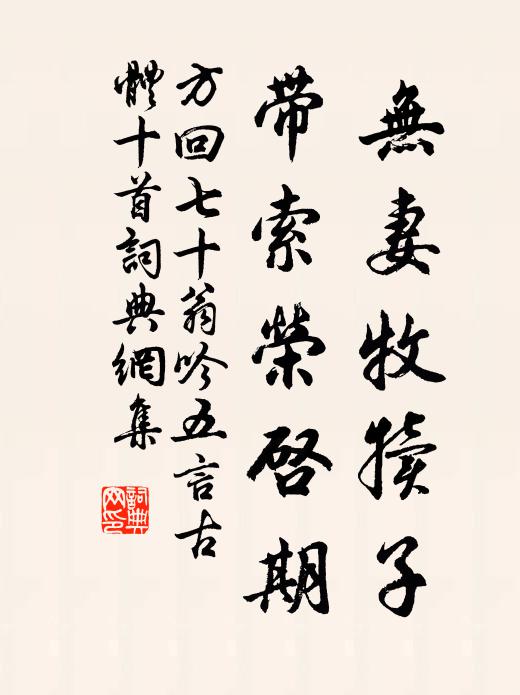 無妻牧犢子
帶索榮啓期
方回七十翁吟五言古
體十首詞典網集
詞典网印